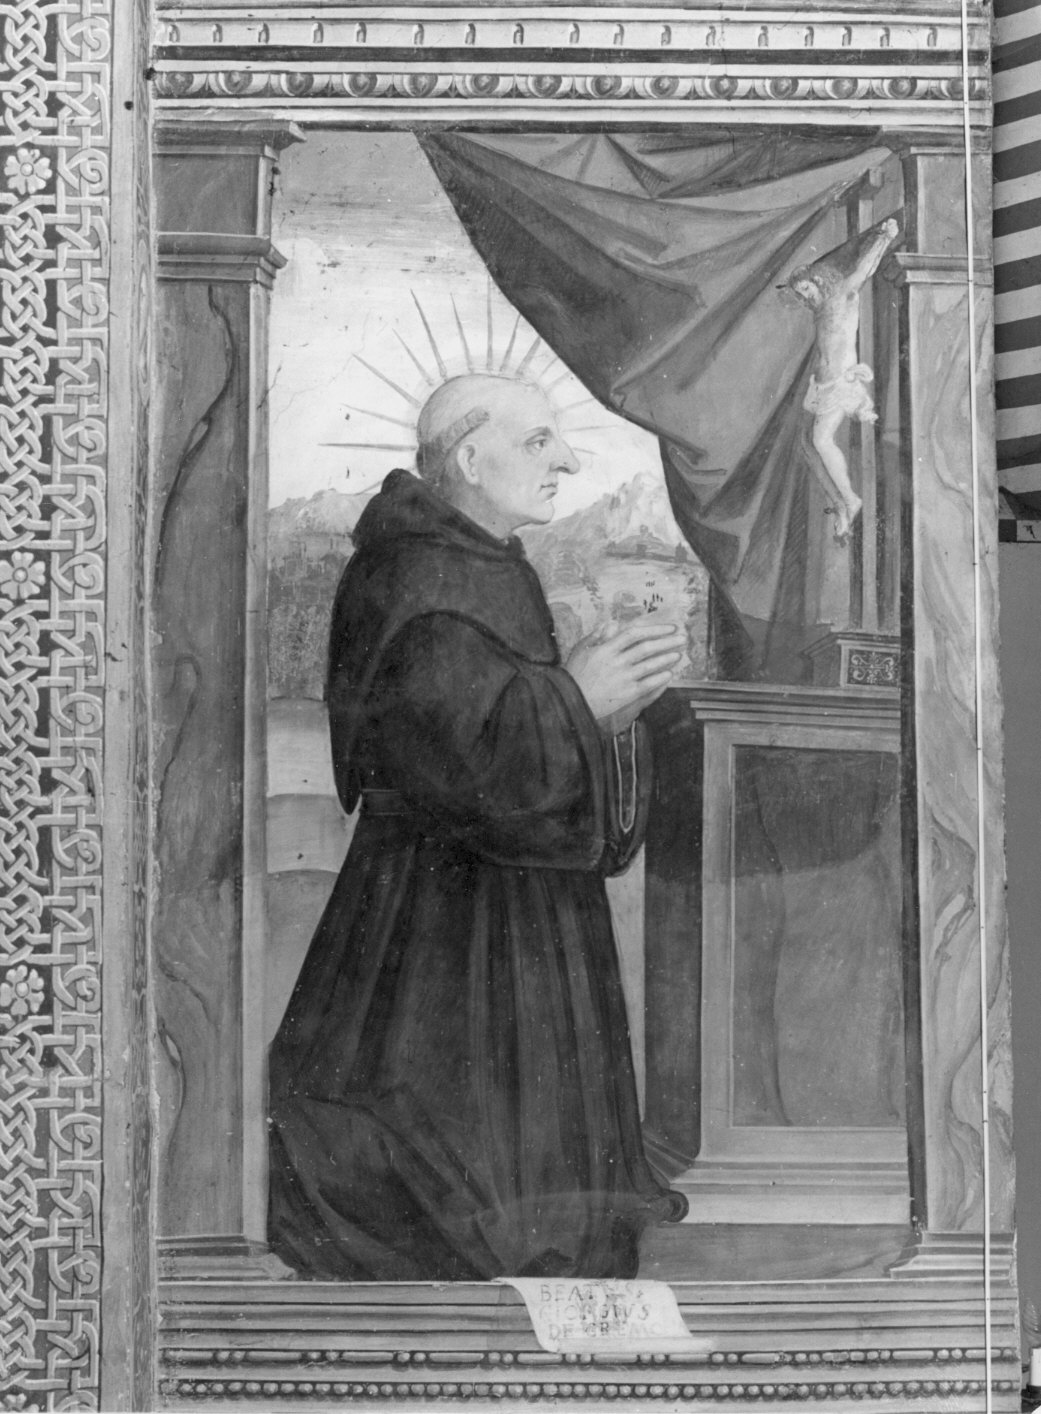 BEATVS
GIORGIVS
DE CREMO